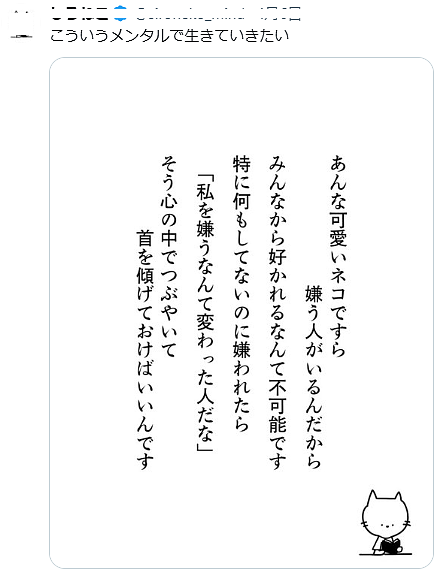 こういうメンタルで生きていきたい
あんな可愛いネコですら
嫌う人がいるんだから
みんなから好かれるなんて不可能です
特に何もしてないのに嫌われたら
「私を嫌うなんて変わった人だな」
そう心の中でつぶやいて
首を傾げておけばいいんです